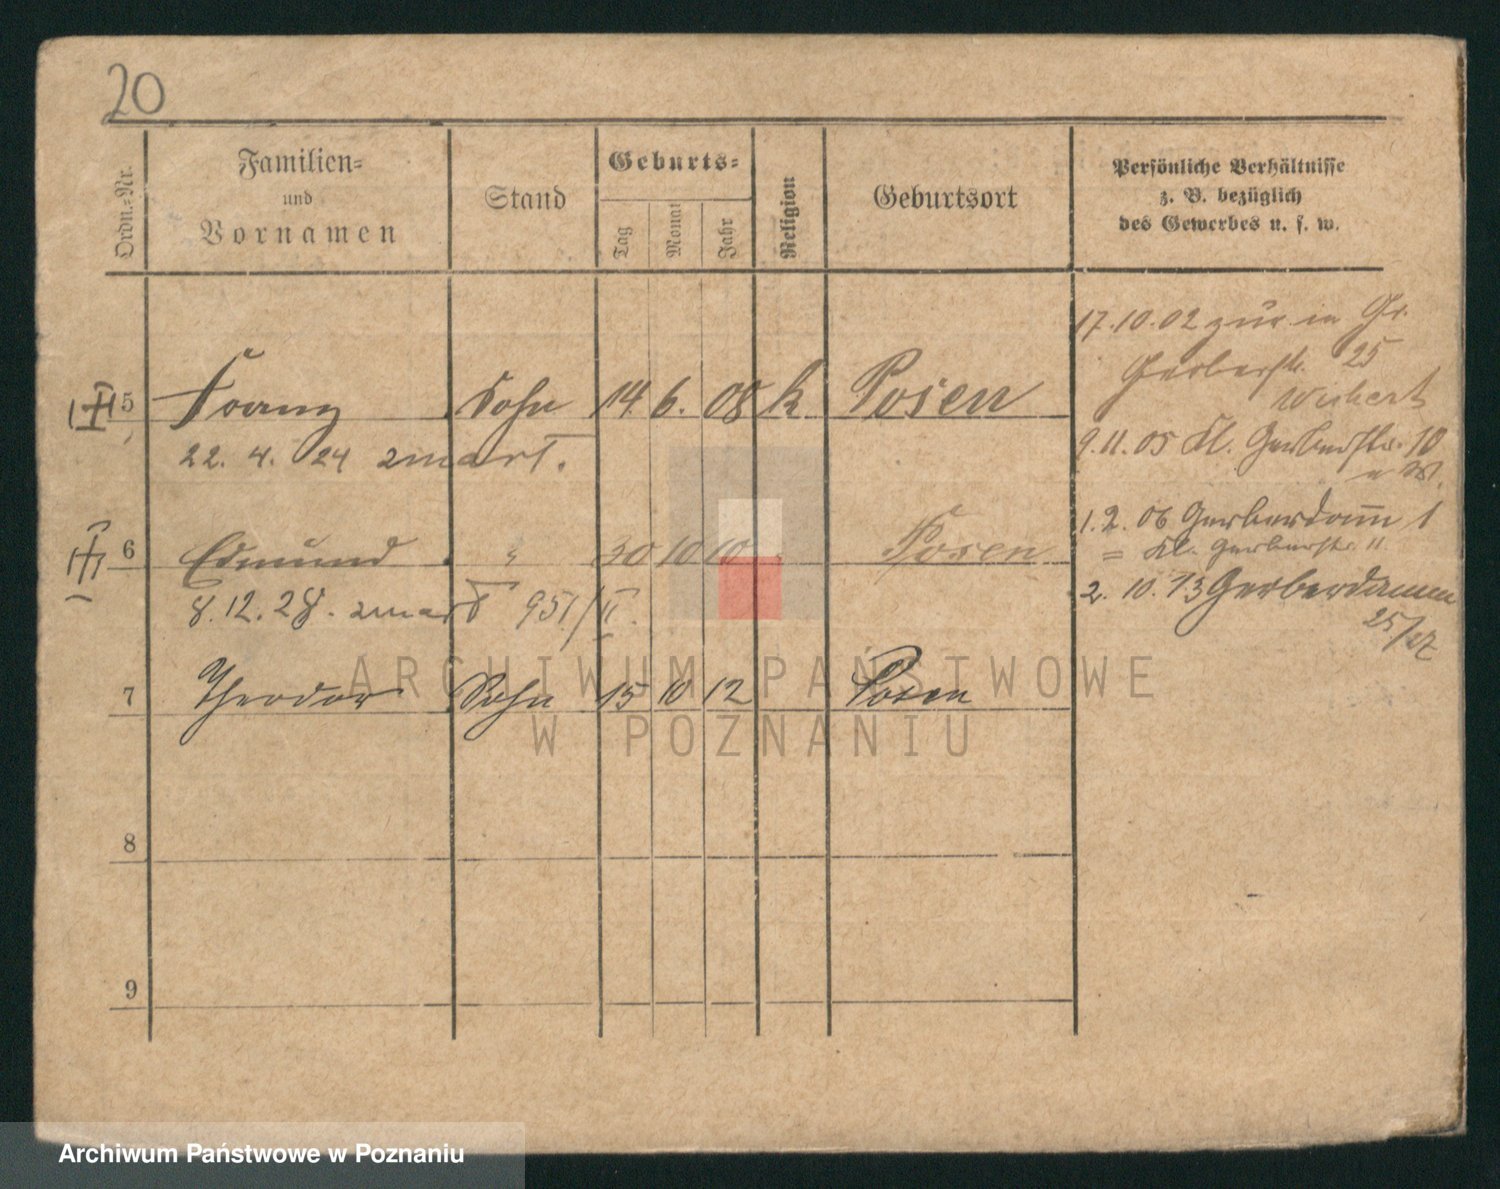 20
Ordn.-Nr.
Familien-
und
Vornamen
Stand
Geburts-
Tag
Monat
Jahr
Religion
Geburtsort
Persönliche Verhältnisse
z. B. bezüglich
des Gewerbes u. s. w.
17.10.02 zur. in Gr.
Gerberstr. 25
Wichert
5 Franz Sohn 14. 6. 08 k Posen
22. 4. 24 zmarł.
9.11.05 Kl. Gerberstr. 10
1. 2. 06 Gerberdamm 1
= Kl. Gerberstr. 11
6 Edmund " 30 10 10 Posen
8. 12. 28. zmarł 951/II.
2. 10. 13 Gerberdamm
25/27
7 Theodor Sohn 15 10 12 Posen
8
9
ARCHIWUM PAŃSTWOWE
W POZNANIU
Archiwum Państwowe w Poznaniu